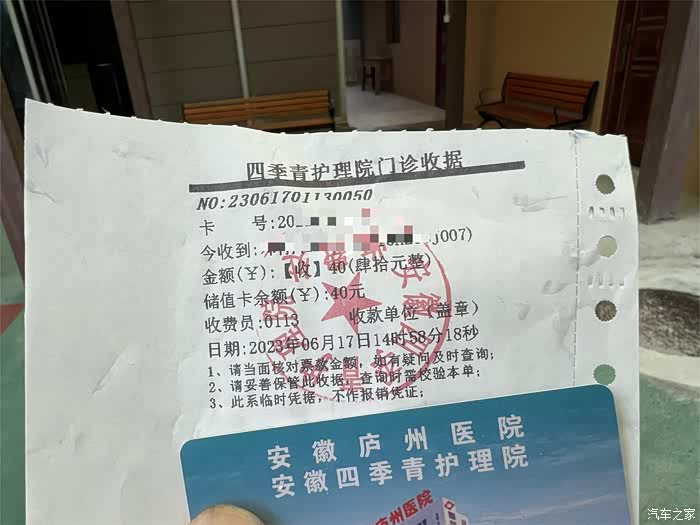 四季青护理院门诊收据
NO:23061701130050
卡 号:20
今收到: j007)
金额(¥):【收】40(肆拾元整)
储值卡余额(¥):40元
收费员:0113 收款单位(盖章)
日期:2023年06月17日14时58分18秒
1、请当面核对票款金额，如有疑问及时查询;
2、请妥善保管此收据，查询时需校验本单;
3、此系临时凭据，不作报销凭证;
安徽庐州医院
安徽四季青护理院
庐州医院
汽车之家